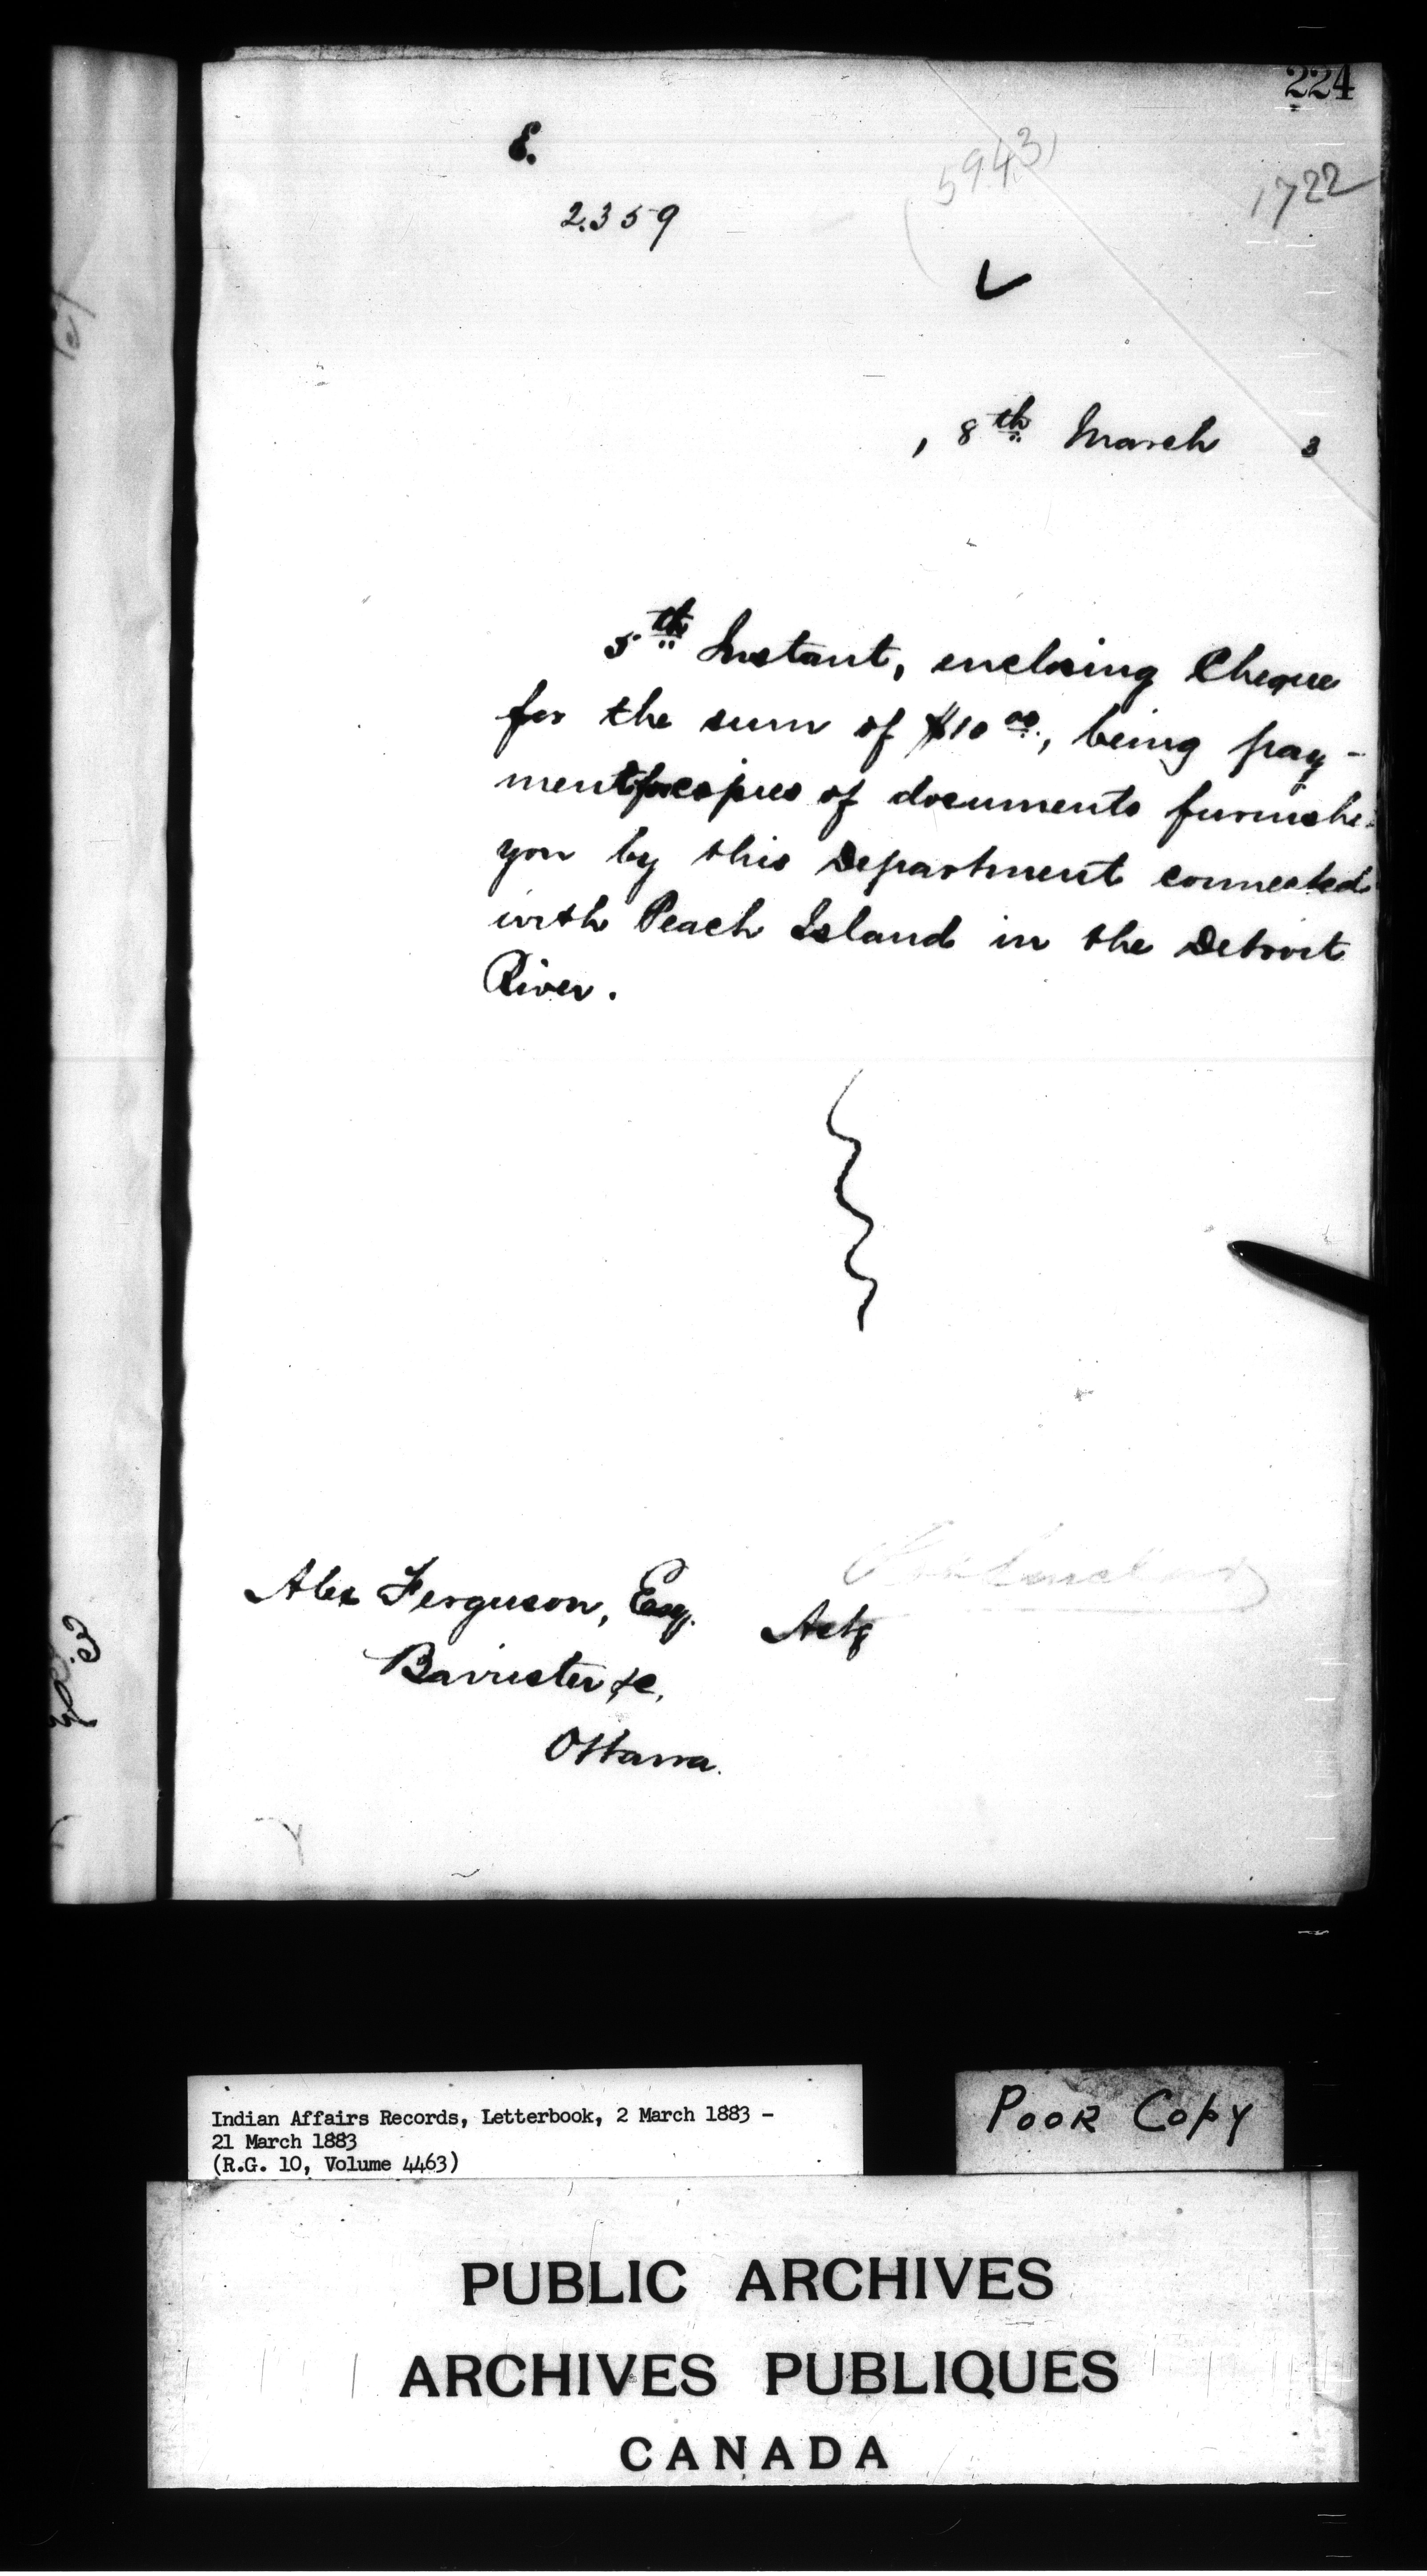 224
E.
5943
1722
2359
, 8th March 3
5th Instant, enclosing Cheque
for the sum of $10 00, being pay-
ment for copies of documents furnishe
you by this Department connected
with Peach Island in the Detroit
River.
Alex Ferguson, Esq.
Actg
Barrister &c,
Ottawa.
Indian Affairs Records, Letterbook, 2 March 1883 -
21 March 1883
(R.G. 10, Volume 4463)
POOR COPY
PUBLIC ARCHIVES
ARCHIVES PUBLIQUES
CANADA